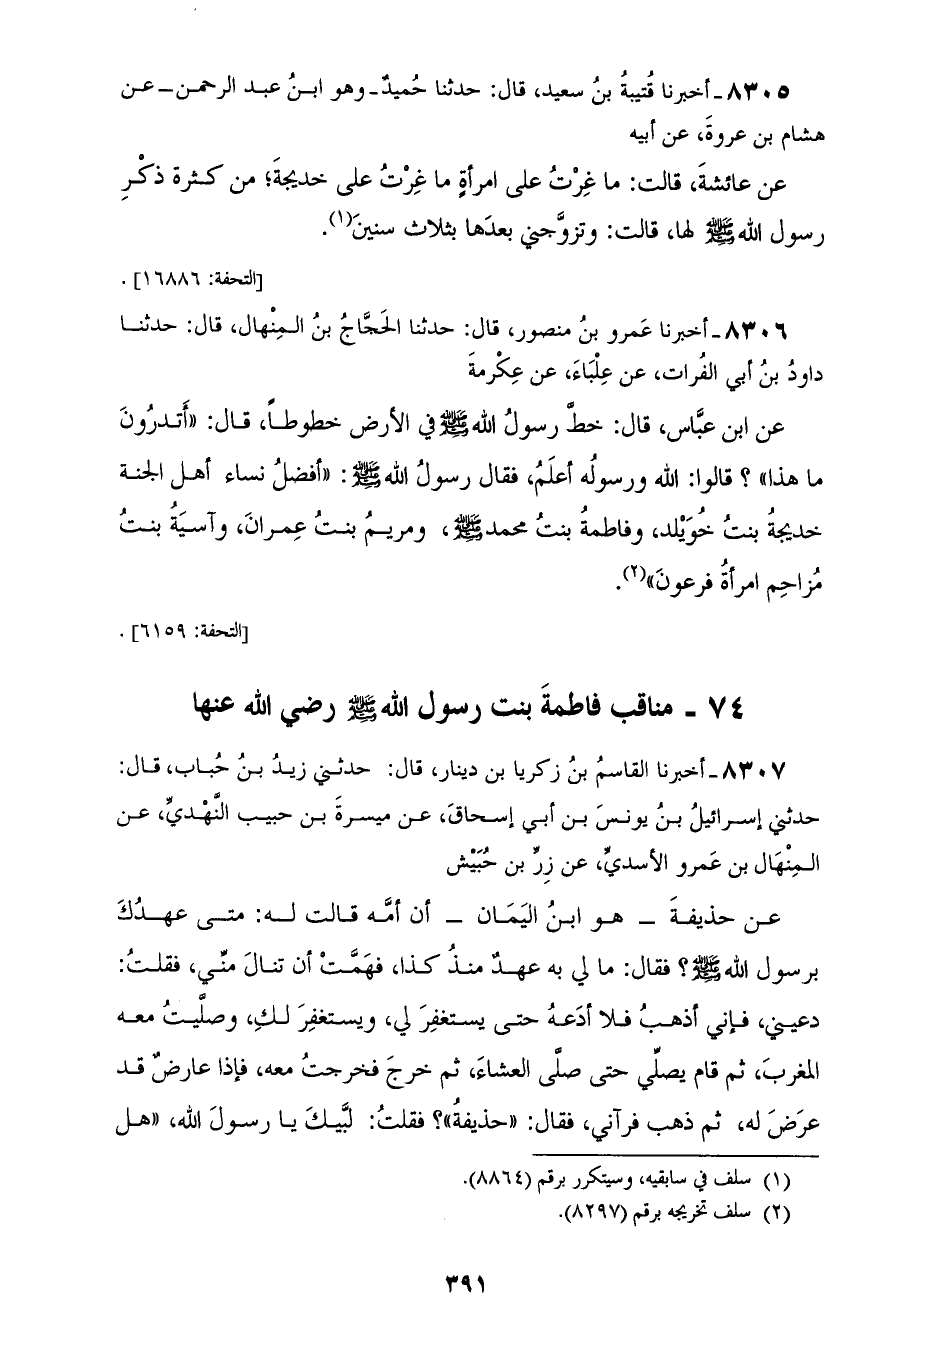 ٨٣٠٥ـ أخبرنا قُتيبةُ بنُ سعيد، قال: حدثنا حُميدٌ ـ وهو ابنُ عبد الرحمن ـ عن
هشام بن عروةَ، عن أبيه
عن عائشةَ، قالت: ما غِرْتُ على امرأةٍ ما غِرْتُ على خديجةَ؛ من كثرة ذكْرِ
رسول الله ﷺ لها، قالت: وتزوَّجني بعدَها بثلاث سنينَ(١).
[التحفة: ١٦٨٨٦] .
٨٣٠٦ـ أخبرنا عَمرو بنُ منصور، قال: حدثنا الحَجَّاجُ بنُ المِنْهال، قال: حدثنا
داودُ بنُ أبي الفُرات، عن عِلْبَاءَ، عن عِكْرمةَ
عن ابن عبَّاس، قال: خطَّ رسولُ الله ﷺ في الأرض خطوطاً، قال: «أَتدرُونَ
ما هذا» ؟ قالوا: الله ورسولُه أعلَمُ، فقال رسولُ الله ﷺ: «أفضلُ نساء أهل الجنة
خديجةُ بنتُ خُوَيْلد، وفاطمةُ بنتُ محمد ﷺ، ومريمُ بنتُ عِمرانَ، وآسيَةُ بنتُ
مُزاحِم امرأةُ فرعونَ»(٢).
[التحفة: ٦١٥٩] .
٧٤ ـ مناقب فاطمةَ بنت رسول الله ﷺ رضي الله عنها
٨٣٠٧ـ أخبرنا القاسمُ بنُ زكريا بن دينار، قال: حدثني زيدُ بنُ حُباب، قال:
حدثني إسرائيلُ بنُ يونسَ بن أبي إسحاقَ، عن ميسرةَ بن حبيب النَّهْديِّ، عن
المِنْهَال بن عَمرو الأسديِّ، عن زِرِّ بن حُبَيْش
عن حذيفةَ ـ هو ابنُ اليَمَان ـ أن أمَّه قالت له: متى عهدُكَ
برسول الله ﷺ؟ فقال: ما لي به عهدٌ منذُ كذا، فهَمَّتْ أن تنالَ منِّي، فقلتُ:
دعيني، فإني أذهبُ فلا أدَعهُ حتى يستغفِرَ لي، ويستغفِرَ لكِ، وصلَّيتُ معه
المغربَ، ثم قام يصلِّي حتى صلَّى العشاءَ، ثم خرجَ فخرجتُ معه، فإذا عارضٌ قد
عرَضَ له، ثم ذهب فرآني، فقال: «حذيفةُ»؟ فقلتُ: لبَّيكَ يا رسولَ الله، «هل
(١) سلف في سابقيه، وسيتكرر برقم (٨٨٦٤).
(٢) سلف تخريجه برقم (٨٢٩٧).
٣٩١